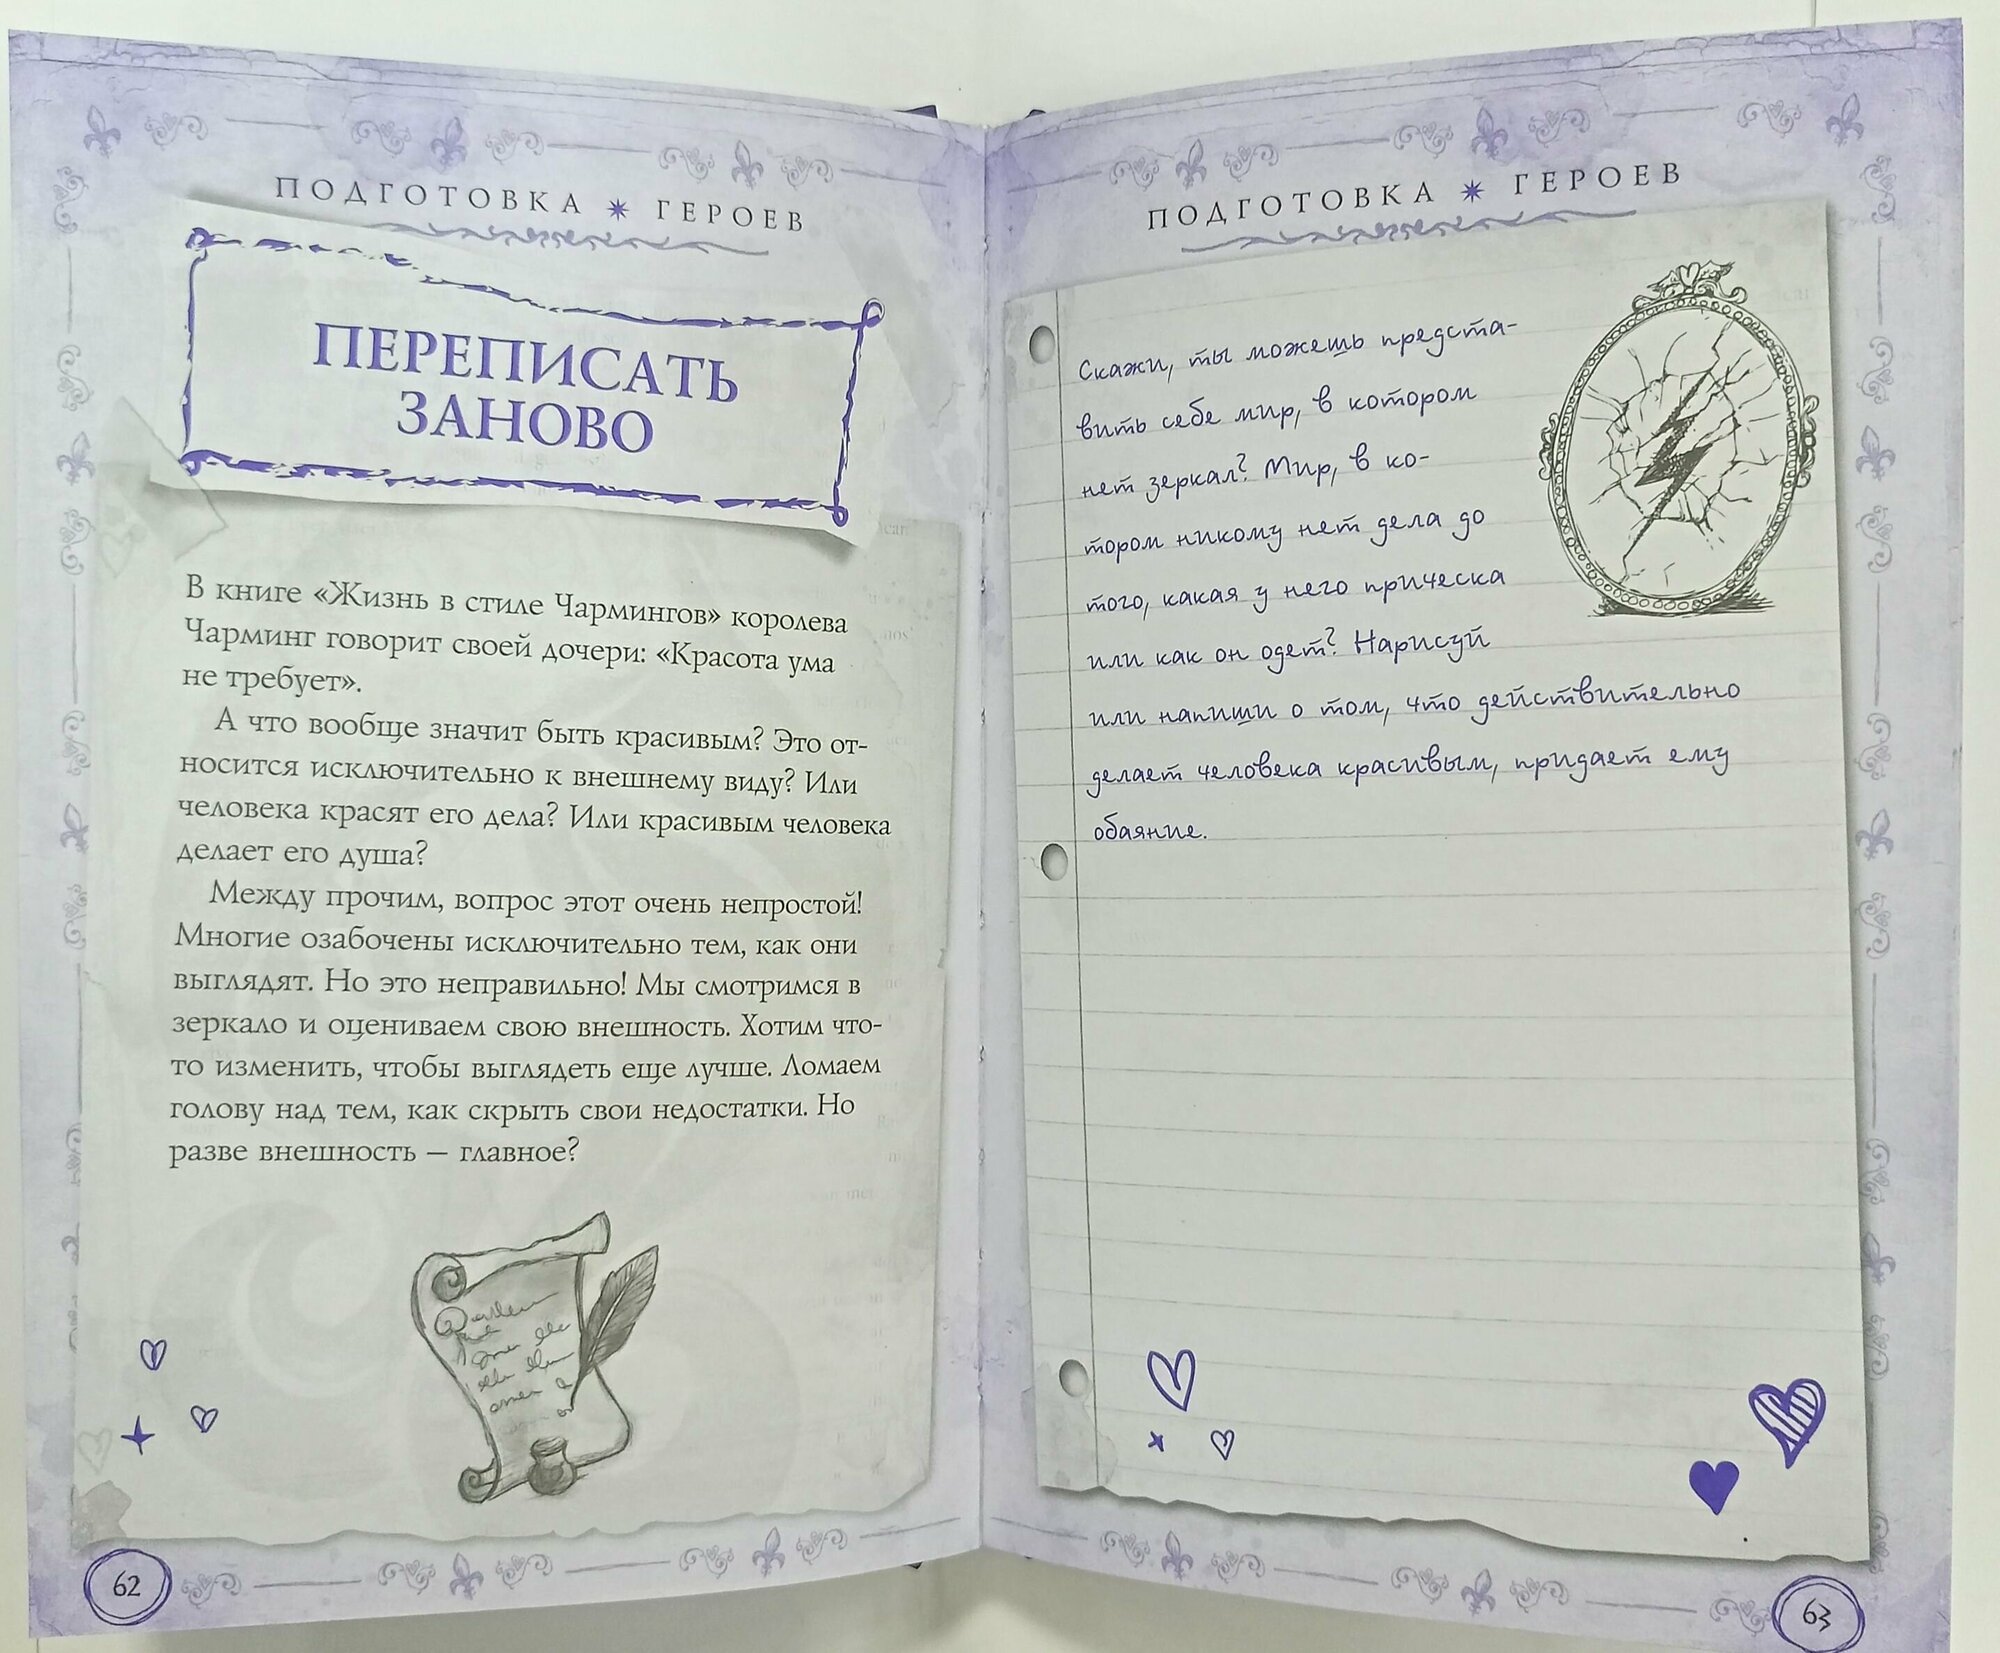 ПОДГОТОВКА ГЕРОЕВ
ПЕРЕПИСАТЬ
ЗАНОВО
В книге «Жизнь в стиле Чармингов» королева
Чарминг говорит своей дочери: «Красота ума
не требует».
А что вообще значит быть красивым? Это от-
носится исключительно к внешнему виду? Или
человека красят его дела? Или красивым человека
делает его душа?
Между прочим, вопрос этот очень непростой!
Многие озабочены исключительно тем, как они
выглядят. Но это неправильно! Мы смотримся в
зеркало и оцениваем свою внешность. Хотим что-
то изменить, чтобы выглядеть еще лучше. Ломаем
голову над тем, как скрыть свои недостатки. Но
разве внешность — главное?
62
ПОДГОТОВКА ГЕРОЕВ
Скажи, ты можешь предста-
вить себе мир, в котором
нет зеркал? Мир, в ко-
тором никому нет дела до
того, какая у него прическа
или как он одет? Нарисуй
или напиши о том, что действительно
делает человека красивым, придает ему
обаяние.
63